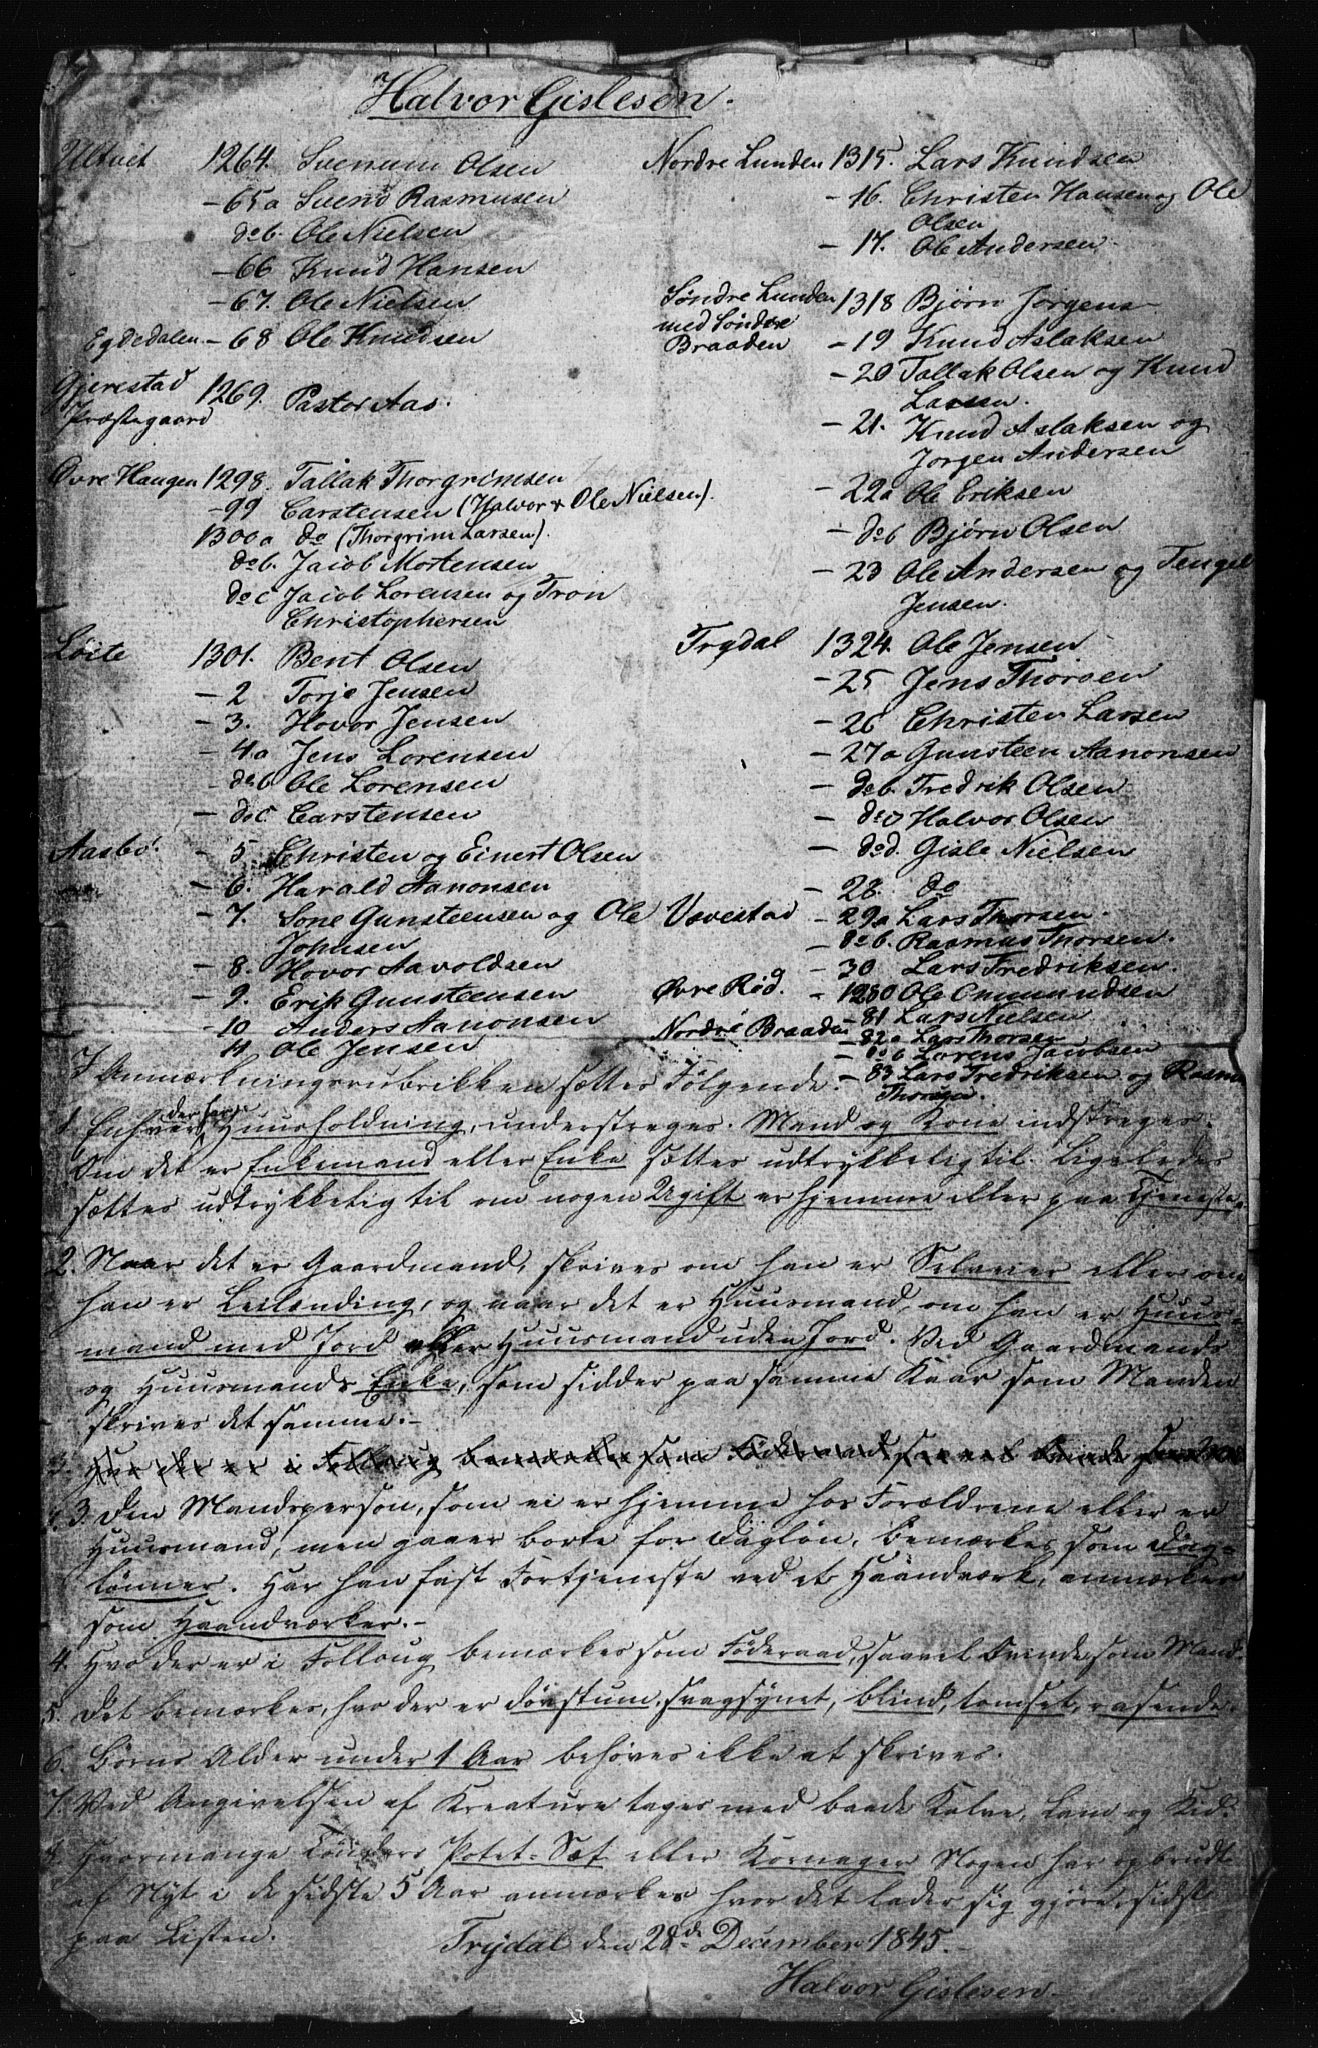 Halvor Gislesen.
Ultvet 1264. Svenum Olsen
— 65a Svend Rasmusen
do b. Ole Nielsen
— 66 Knud Hansen
— 67. Ole Nielsen
Egdedalen — 68 Ole Knudsen
Gjerestad 1269. Pastor Aas.
Præstegaard
Øvre Haugen 1298. Tallak Thorgrimsen
— 99 Carstensen (Halvor & Ole Nielsen).
1300a do (Thorgrim Larsen).
do b. Jacob Mortensen
do c Jacob Lorensen og Tron
Christophersen
Løite 1301. Bent Olsen
— 2 Torje Jensen
— 3. Hovor Jensen
— 4a Jens Lorensen
do b Ole Lorensen
do c Carstensen
Aasbø. — 5 Christen og Einert Olsen
— 6. Harald Aanonsen
— 7. Sone Gunsteensen og Ole
Johnsen
— 8. Hovor Aavoldsen
— 9. Erik Gunsteensen
— 10 Anders Aanonsen
11 Ole Jensen
Nordre Lunden 1315. Lars Knudsen
— 16. Christen Hansen og Ole
Olsen
— 17. Ole Andersen
Søndre Lunden 1318 Bjørn Jørgens
med Søndre
Braaden — 19 Knud Aslaksen
— 20 Tallak Olsen og Knud
Lassen.
— 21. Knud Aslaksen og
Jorgen Andersen
— 22a Ole Eriksen
— do b Bjørn Olsen
— 23 Ole Andersen og Tengel
Jensen.
Trydal 1324. Ole Jensen
— 25 Jens Thorsen
— 26 Christen Larsen
— 27a Gunsteen Aanonsen
— do b. Fredrik Olsen
— do c Halvor Olsen
— do d. Gisle Nielsen
— 28. do
Vevestad — 29a Lars Thorsen.
— do b. Rasmus Thorsen.
— 30 Lars Fredriksen.
Øvre Rød. — 1280 Ole Ommundsen
— 81 Lars Nielsen
Nordre Braaden — 82a Lars Thorsen
— do b Lorens Jacobsen
— 83 Lars Fredriksen og Rasm
Thorsen.
I Anmærkningsrubrikken sættes Følgende.
1. Enhver der har Huusholdning, understreges. Mand og Kone indstreges.
Om det er Enkemand eller Enke sættes udtrykkelig til. Ligeledes
sættes udtrykkelig til om nogen Ugift er hjemme eller paa Tjeneste.
2. Naar det er Gaardmand, skrives om han er Selveier eller om
han er Leilending, og naar det er Huusmand, om han er Huus-
mand med Jord eller Huusmand uden Jord. Ved Gaardmands
og Huusmands Enke, som sidder paa samme Kaar som Manden
skrives det samme.-
3. Hvo der er i Follaug bemærkes som Føderaad saavel Kvinde som Mand
3. Den Mandsperson, som ei er hjemme hos Forældrene eller er
Huusmand, men gaaer borte for Dagløn, bemærkes som Dag-
lønner. Har han fast Fortjeneste ved et Haandværk, anmærkes
som Haandværker.-
4. Hvo der er i Follaug bemærkes som Føderaad, saavel Kvinde som Mand.
5. Det bemærkes, hvo der er døvstum, svagsynet, blind, tomset, rasende.
6. Børns Alder under 1 Aar behøves ikke at skrives.
7. Ved Angivelsen af Kreature tages med baade Kalve, Lam og Kid.
8. Hvormange Tønders Potet-Sæt eller Kornager Nogen har opbrudt
af Nyt i de sidste 5 Aar anmærkes hvor det lader sig gjøre, sidst
paa Listen.
Trydal den 28de December 1845.
Halvor Gislesen.